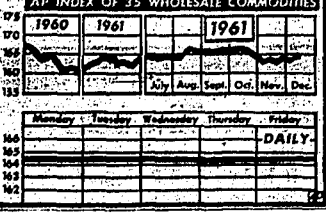 AP INDEX OF 35 WHOLESALE COMMODITIES
175
1960 1961 1961
170
165
160
155
July Aug. Sept. Oct. Nov. Dec.
Monday Tuesday Wednesday Thursday Friday
DAILY
166
165
164
163
162